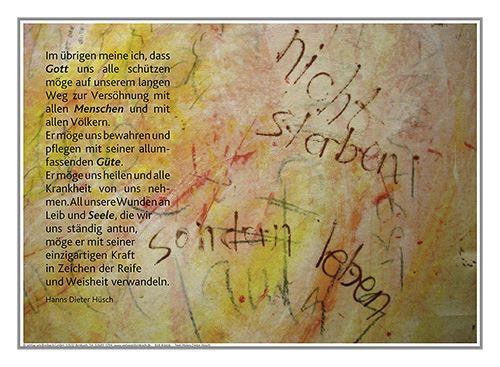 Im übrigen meine ich, dass
Gott uns alle schützen
möge auf unserem langen
Weg zur Versöhnung mit
allen Menschen und mit
allen Völkern.
Er möge uns bewahren und
pflegen mit seiner allum-
fassenden Güte.
Er möge uns heilen und alle
Krankheit von uns neh-
men. All unsere Wunden an
Leib und Seele, die wir
uns ständig antun,
möge er mit seiner
einzigartigen Kraft
in Zeichen der Reife
und Weisheit verwandeln.
Hanns Dieter Hüsch
nicht
sterben
sondern
leben